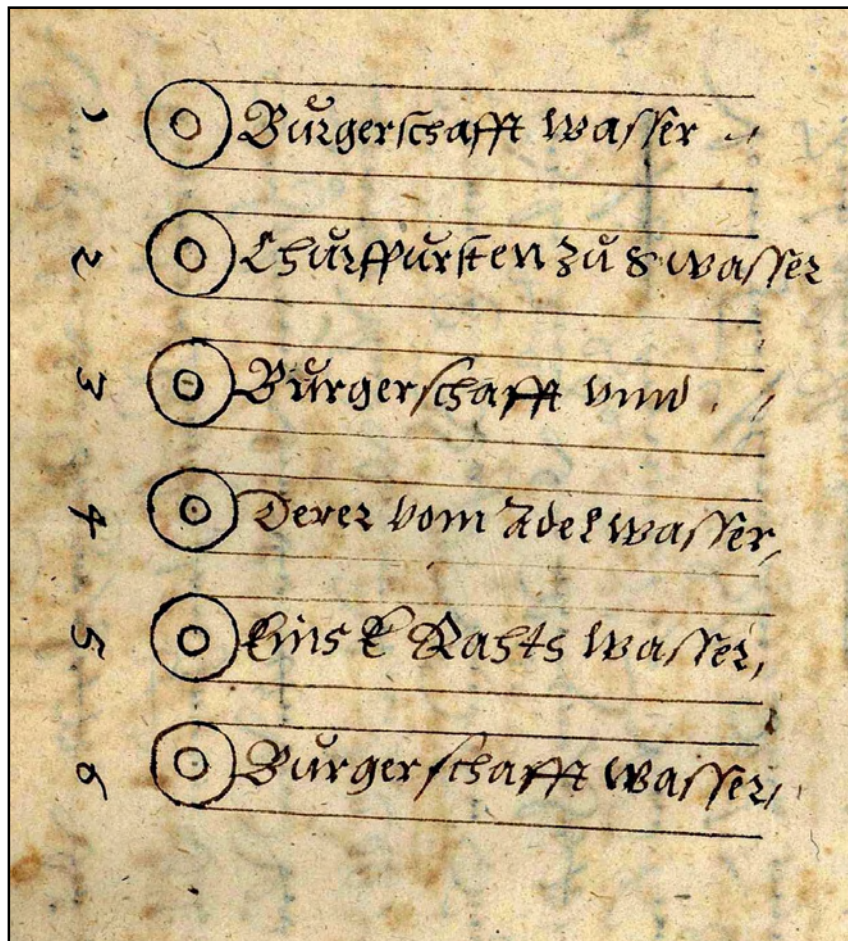 1 Bürgerschafft wasser
2 Churfürsten zu S wasser
3 Bürgerschafft vnnd
4 Derer vom Adel wasser,
5 Eins E Rahts wasser,
6 Bürgerschafft wasser,